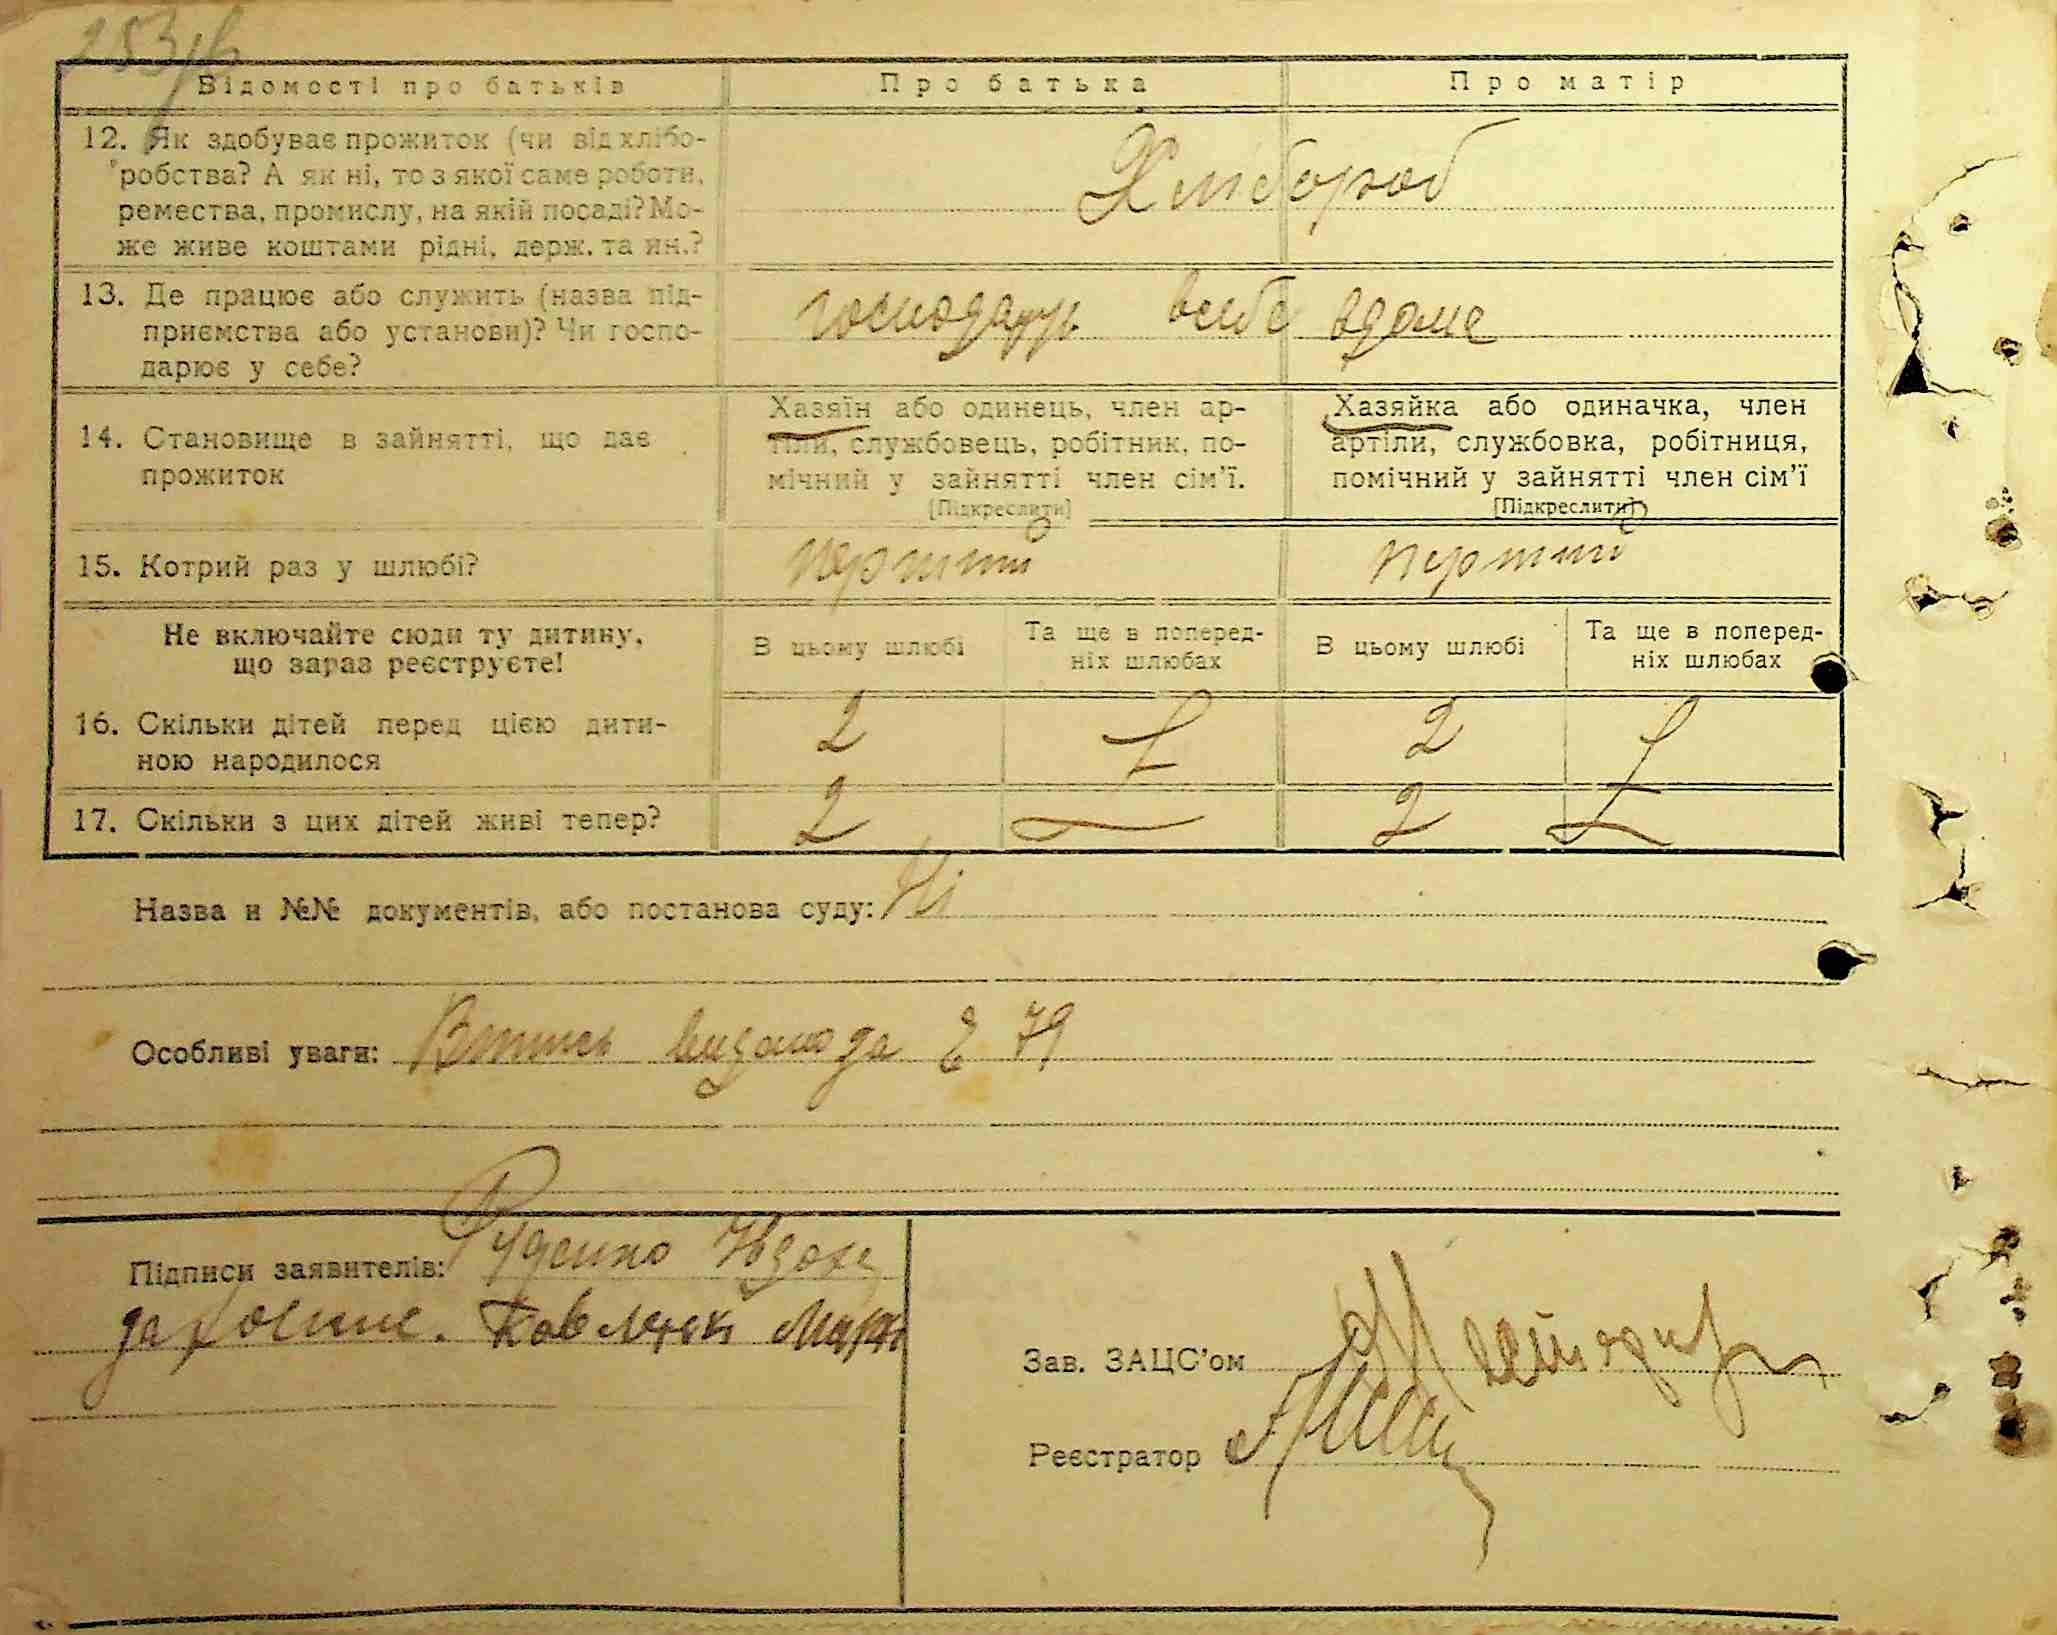 253 зв
Відомості про батьків
Про батька
Про матір
12. Як здобуває прожиток (чи від хлібо-
робства? А як ні, то з якої саме роботи,
ремества, промислу, на якій посаді? Мо-
же живе коштами рідні, держ. та ин.?
Хлібороб
13. Де працює або служить (назва під-
приємства або установи)? Чи госпо-
дарює у себе?
господарює всебе вдоме
14. Становище в зайнятті, що дає
прожиток
Хазяїн або одинець, член ар-
тіли, службовець, робітник, по-
мічний у зайнятті член сім’ї.
[Підкреслити]
Хазяйка або одиначка, член
артіли, службовка, робітниця,
помічний у зайнятті член сім’ї
[Підкреслити]
15. Котрий раз у шлюбі?
перший
перший
Не включайте сюди ту дитину,
що зараз реєструєте!
В цьому шлюбі
Та ще в поперед-
ніх шлюбах
В цьому шлюбі
Та ще в поперед-
ніх шлюбах
16. Скільки дітей перед цією дити-
ною народилося
2
2
17. Скільки з цих дітей живі тепер?
2
2
Назва и №№ документів, або постанова суду: Ні
Особливі уваги: Випись видано за 79
Підписи заявителів: Руденко
Зав. ЗАЦС’ом
Реєстратор